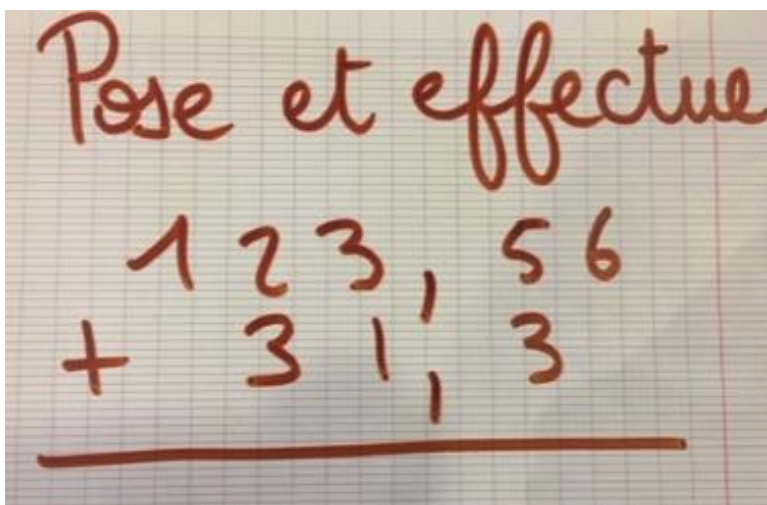 Pose et effectue
123,56
+ 31,3